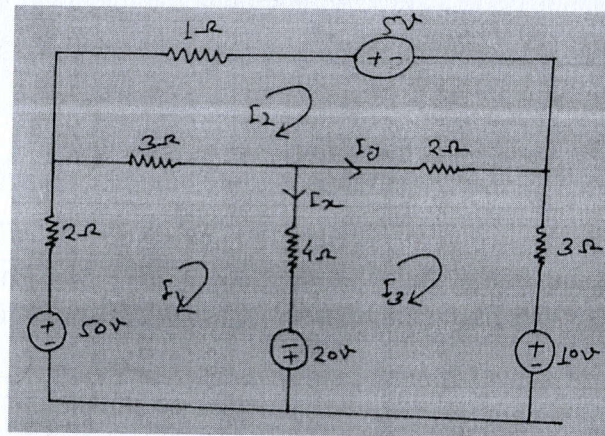 1Ω
5V
+ -
I2
3Ω
I0
2Ω
Ix
2Ω
4Ω
3Ω
I3
+
-
50V
-
+
20V
+
-
10V